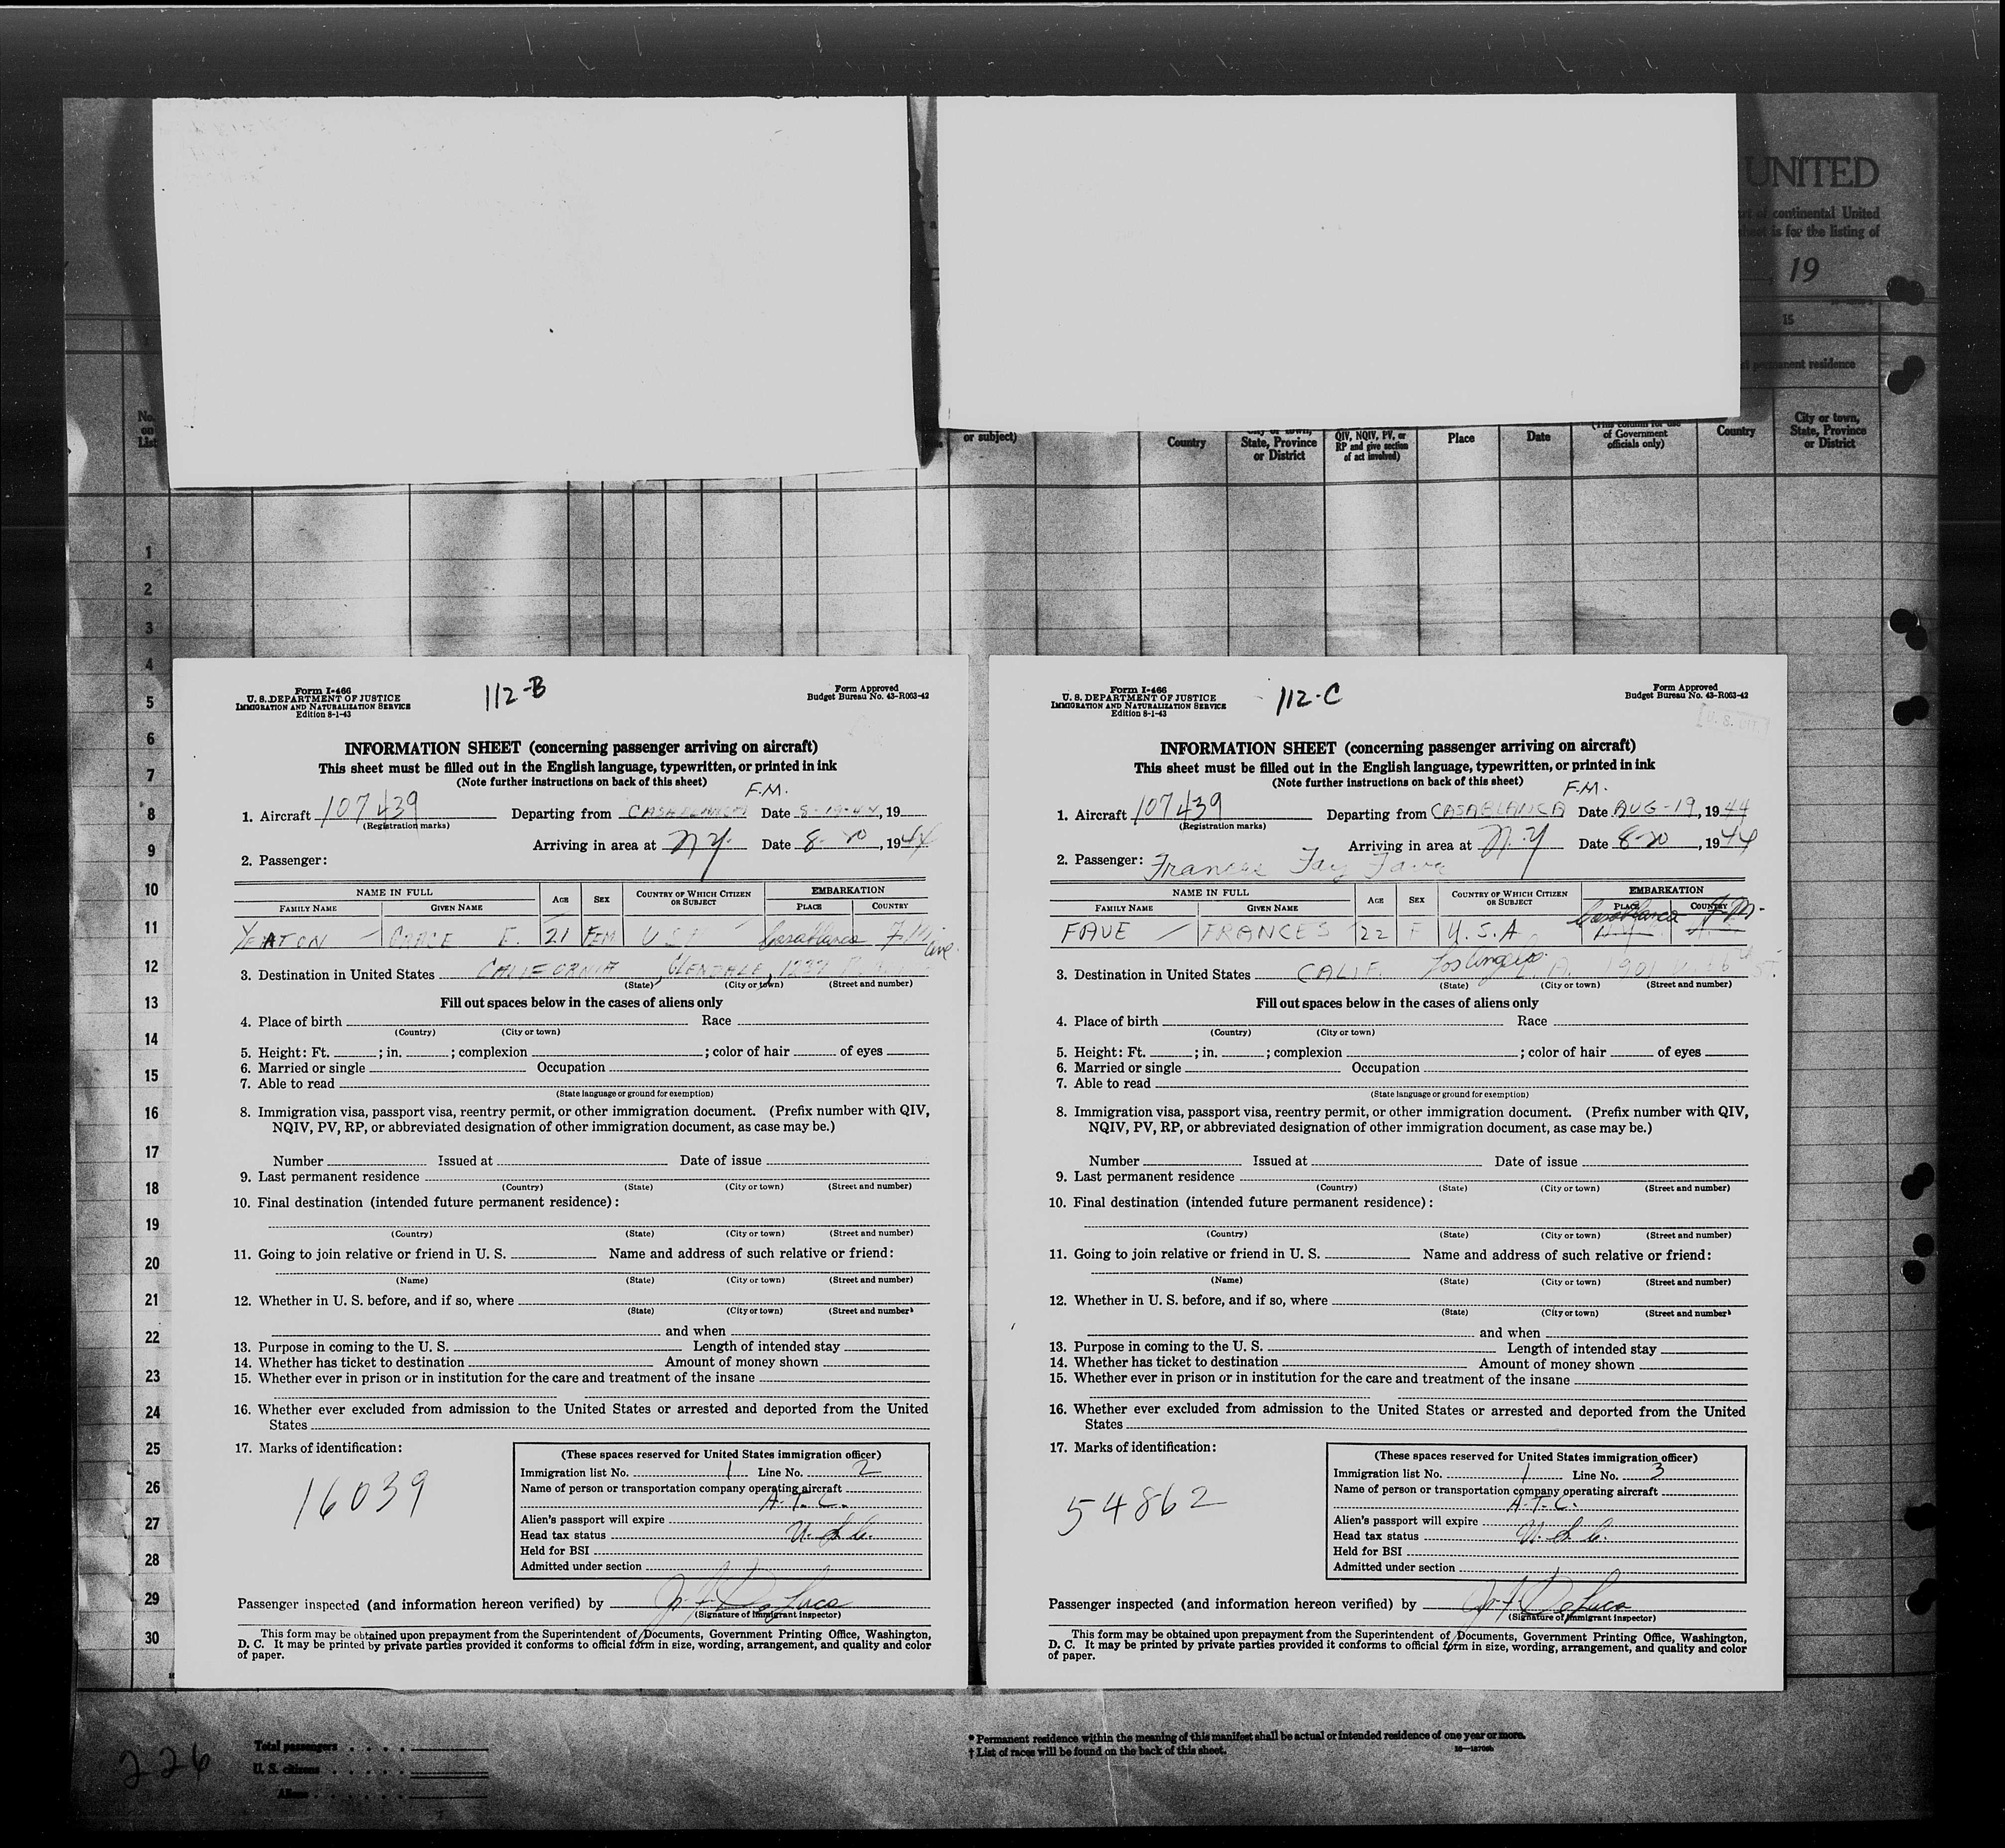 UNITED
rt of continental United
sheet is for the listing of
, 19
15
permanent residence
No. on List
or subject)
Country
City or town, State, Province or District
QIV, NQIV, PV, or RP and give section of act involved)
Place
Date
(This column for use of Government officials only)
Country
City or town, State, Province or District
1
2
3
4
5
6
7
8
9
10
11
12
13
14
15
16
17
18
19
20
21
22
23
24
25
26
27
28
29
30
Form I-466
U. S. DEPARTMENT OF JUSTICE
IMMIGRATION AND NATURALIZATION SERVICE
Edition 8-1-43
112-B
Form Approved
Budget Bureau No. 43-R063-42
INFORMATION SHEET (concerning passenger arriving on aircraft)
This sheet must be filled out in the English language, typewritten, or printed in ink
(Note further instructions on back of this sheet)
F.M.
1. Aircraft 107439 Departing from CASABLANCA Date 8-19-44, 19
(Registration marks)
Arriving in area at N.Y. Date 8-20, 1944
2. Passenger:
NAME IN FULL AGE SEX COUNTRY OF WHICH CITIZEN OR SUBJECT EMBARKATION
FAMILY NAME GIVEN NAME PLACE COUNTRY
YEATON GRACE E. 21 FEM US Casablanca F.M.
3. Destination in United States CALIFORNIA, GLENDALE, 1237 ave.
(State) (City or town) (Street and number)
Fill out spaces below in the cases of aliens only
4. Place of birth Race
(Country) (City or town)
5. Height: Ft. ; in. ; complexion ; color of hair of eyes
6. Married or single Occupation
7. Able to read
(State language or ground for exemption)
8. Immigration visa, passport visa, reentry permit, or other immigration document. (Prefix number with QIV,
NQIV, PV, RP, or abbreviated designation of other immigration document, as case may be.)
Number Issued at Date of issue
9. Last permanent residence
(Country) (State) (City or town) (Street and number)
10. Final destination (intended future permanent residence):
(Country) (State) (City or town) (Street and number)
11. Going to join relative or friend in U. S. Name and address of such relative or friend:
(Name) (State) (City or town) (Street and number)
12. Whether in U. S. before, and if so, where
(State) (City or town) (Street and number)
and when
13. Purpose in coming to the U. S. Length of intended stay
14. Whether has ticket to destination Amount of money shown
15. Whether ever in prison or in institution for the care and treatment of the insane
16. Whether ever excluded from admission to the United States or arrested and deported from the United
States
17. Marks of identification:
16039
(These spaces reserved for United States immigration officer)
Immigration list No. 1 Line No. 2
Name of person or transportation company operating aircraft
A.T.C.
Alien's passport will expire
Head tax status U.S.C.
Held for BSI
Admitted under section
Passenger inspected (and information hereon verified) by J. F. DeLuca
(Signature of Immigrant inspector)
This form may be obtained upon prepayment from the Superintendent of Documents, Government Printing Office, Washington,
D. C. It may be printed by private parties provided it conforms to official form in size, wording, arrangement, and quality and color
of paper.
Form I-466
U. S. DEPARTMENT OF JUSTICE
IMMIGRATION AND NATURALIZATION SERVICE
Edition 8-1-43
112-C
Form Approved
Budget Bureau No. 43-R063-42
INFORMATION SHEET (concerning passenger arriving on aircraft)
This sheet must be filled out in the English language, typewritten, or printed in ink
(Note further instructions on back of this sheet)
F.M.
1. Aircraft 107439 Departing from CASABLANCA Date AUG-19, 1944
(Registration marks)
Arriving in area at N.Y Date 8-20, 1944
2. Passenger: Frances Fay Fave
NAME IN FULL AGE SEX COUNTRY OF WHICH CITIZEN OR SUBJECT EMBARKATION
FAMILY NAME GIVEN NAME PLACE COUNTRY
FAVE FRANCES 22 F U.S.A Casablanca F.M.
3. Destination in United States CALIF. Los Angeles 1901 W. 66th ST.
(State) (City or town) (Street and number)
Fill out spaces below in the cases of aliens only
4. Place of birth Race
(Country) (City or town)
5. Height: Ft. ; in. ; complexion ; color of hair of eyes
6. Married or single Occupation
7. Able to read
(State language or ground for exemption)
8. Immigration visa, passport visa, reentry permit, or other immigration document. (Prefix number with QIV,
NQIV, PV, RP, or abbreviated designation of other immigration document, as case may be.)
Number Issued at Date of issue
9. Last permanent residence
(Country) (State) (City or town) (Street and number)
10. Final destination (intended future permanent residence):
(Country) (State) (City or town) (Street and number)
11. Going to join relative or friend in U. S. Name and address of such relative or friend:
(Name) (State) (City or town) (Street and number)
12. Whether in U. S. before, and if so, where
(State) (City or town) (Street and number)
and when
13. Purpose in coming to the U. S. Length of intended stay
14. Whether has ticket to destination Amount of money shown
15. Whether ever in prison or in institution for the care and treatment of the insane
16. Whether ever excluded from admission to the United States or arrested and deported from the United
States
17. Marks of identification:
54862
(These spaces reserved for United States immigration officer)
Immigration list No. 1 Line No. 3
Name of person or transportation company operating aircraft
A.T.C.
Alien's passport will expire
Head tax status U.S.C.
Held for BSI
Admitted under section
Passenger inspected (and information hereon verified) by J. F. DeLuca
(Signature of Immigrant inspector)
This form may be obtained upon prepayment from the Superintendent of Documents, Government Printing Office, Washington,
D. C. It may be printed by private parties provided it conforms to official form in size, wording, arrangement, and quality and color
of paper.
226
Total passengers
U. S. citizens
Aliens
* Permanent residence within the meaning of this manifest shall be actual or intended residence of one year or more.
† List of races will be found on the back of this sheet.